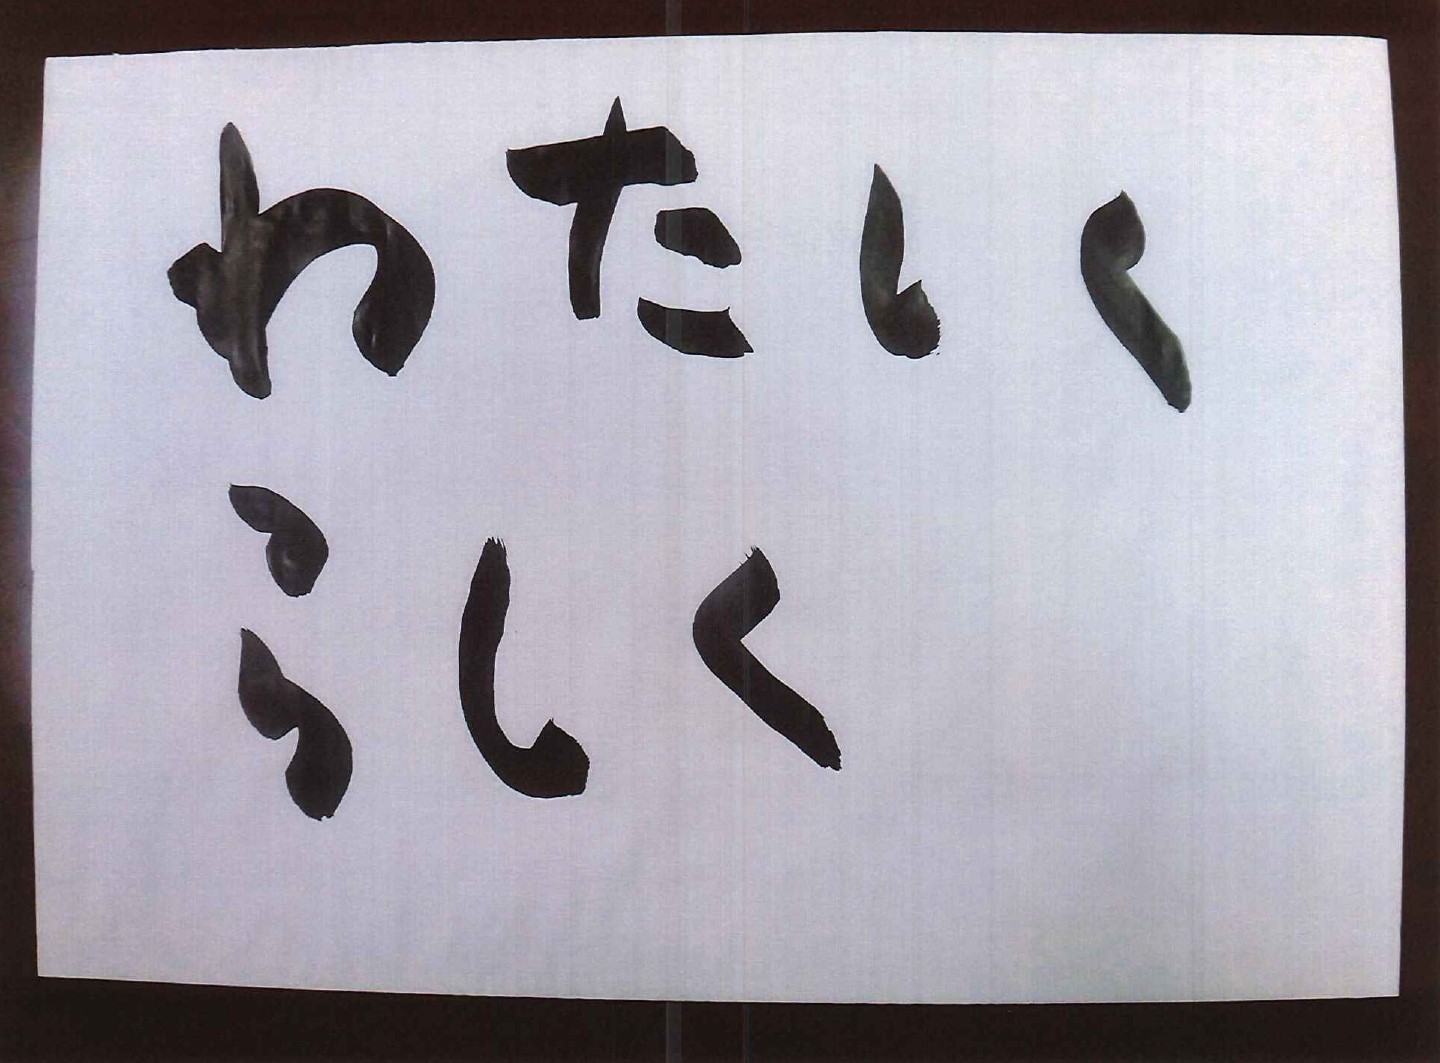 わたしく
らしく